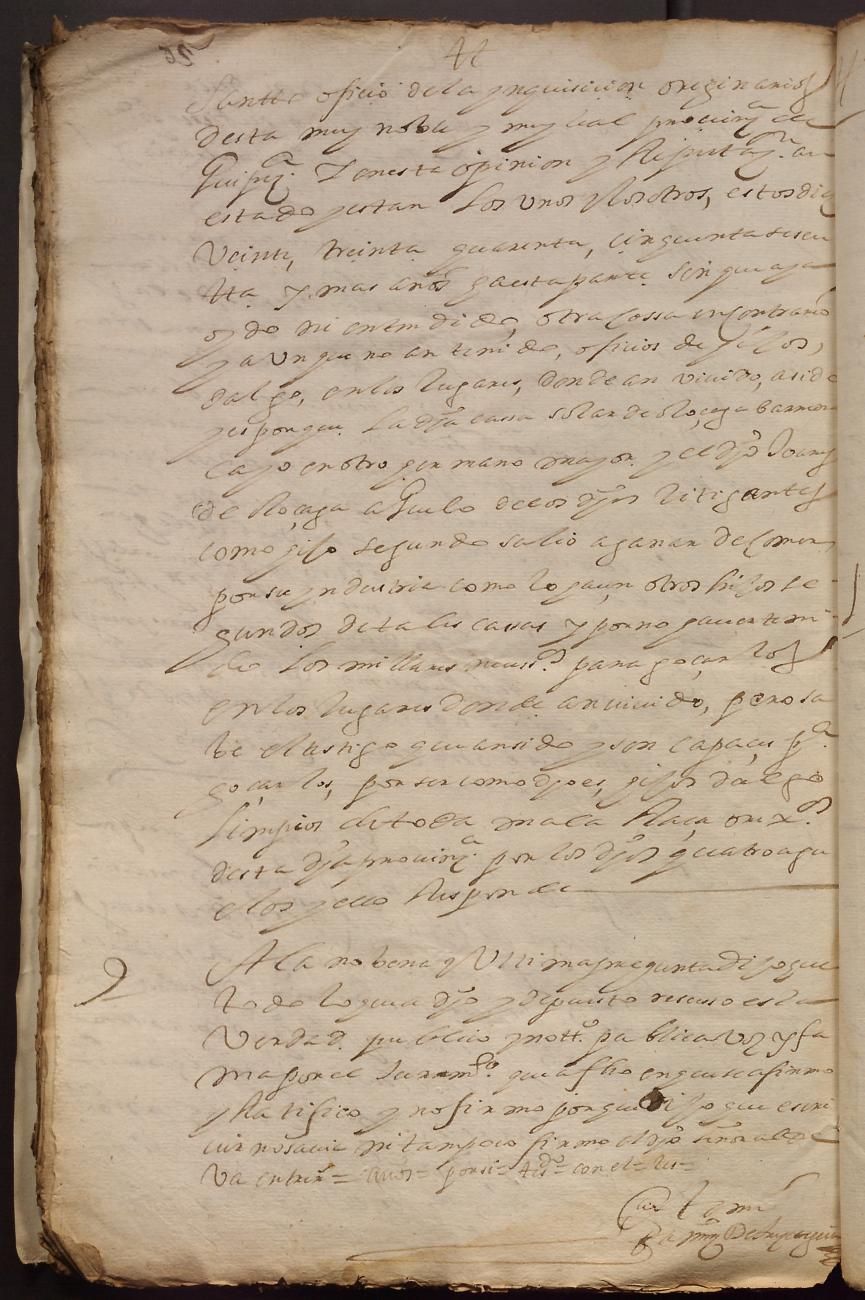 Santto oficio de la ynquisicion originarios
desta muy noble y muy leal provinçª de
Guipuzª. Y en esta opinion y Reputaçon. an
estado y estan los unos y los otros, estos diez
veinte, treinta quarenta, cinquenta sesen
tta y mas años ha esta parte sin que aya
oydo ni entendido, otra cossa en contrario
y aunque no an tenido, oficios de hijos,
dalgo, en los lugares, donde an vivido, a sido
y es porque la dha cassa solar de Loçaga
cayo en otro hermano mayor y el dho Joanes
de Loçaga aguelo de los dhos litigantes
como hijo segundo salio a ganar de comer
por su yndustria como lo haçen otros hijos se
gundos de tales cassas y por no haver teni
do los millares neçess.os para goçar los
en los lugares donde an vivido, pero sa
be el testigo que an sido y son capaçes pª.
goçarlos, por ser como dho es, hijos dalgo
limpios de toda mala Raça orix.os
desta dha provinçª. por los dhos quatro agu
elos y esto Responde
9 A la nobena y Ultima pregunta dixo que
todo lo que a dho y depuesto de suso es la
verdad. publico y nott.º publica voz y fa
ma por el Juram.to que a fho en que se afirmo
y Ratifico y no firmo porque dixo que escri
vir no save ni tampoco firmo el dho señor alcalde
Va entrer = = por si = = con el = les =